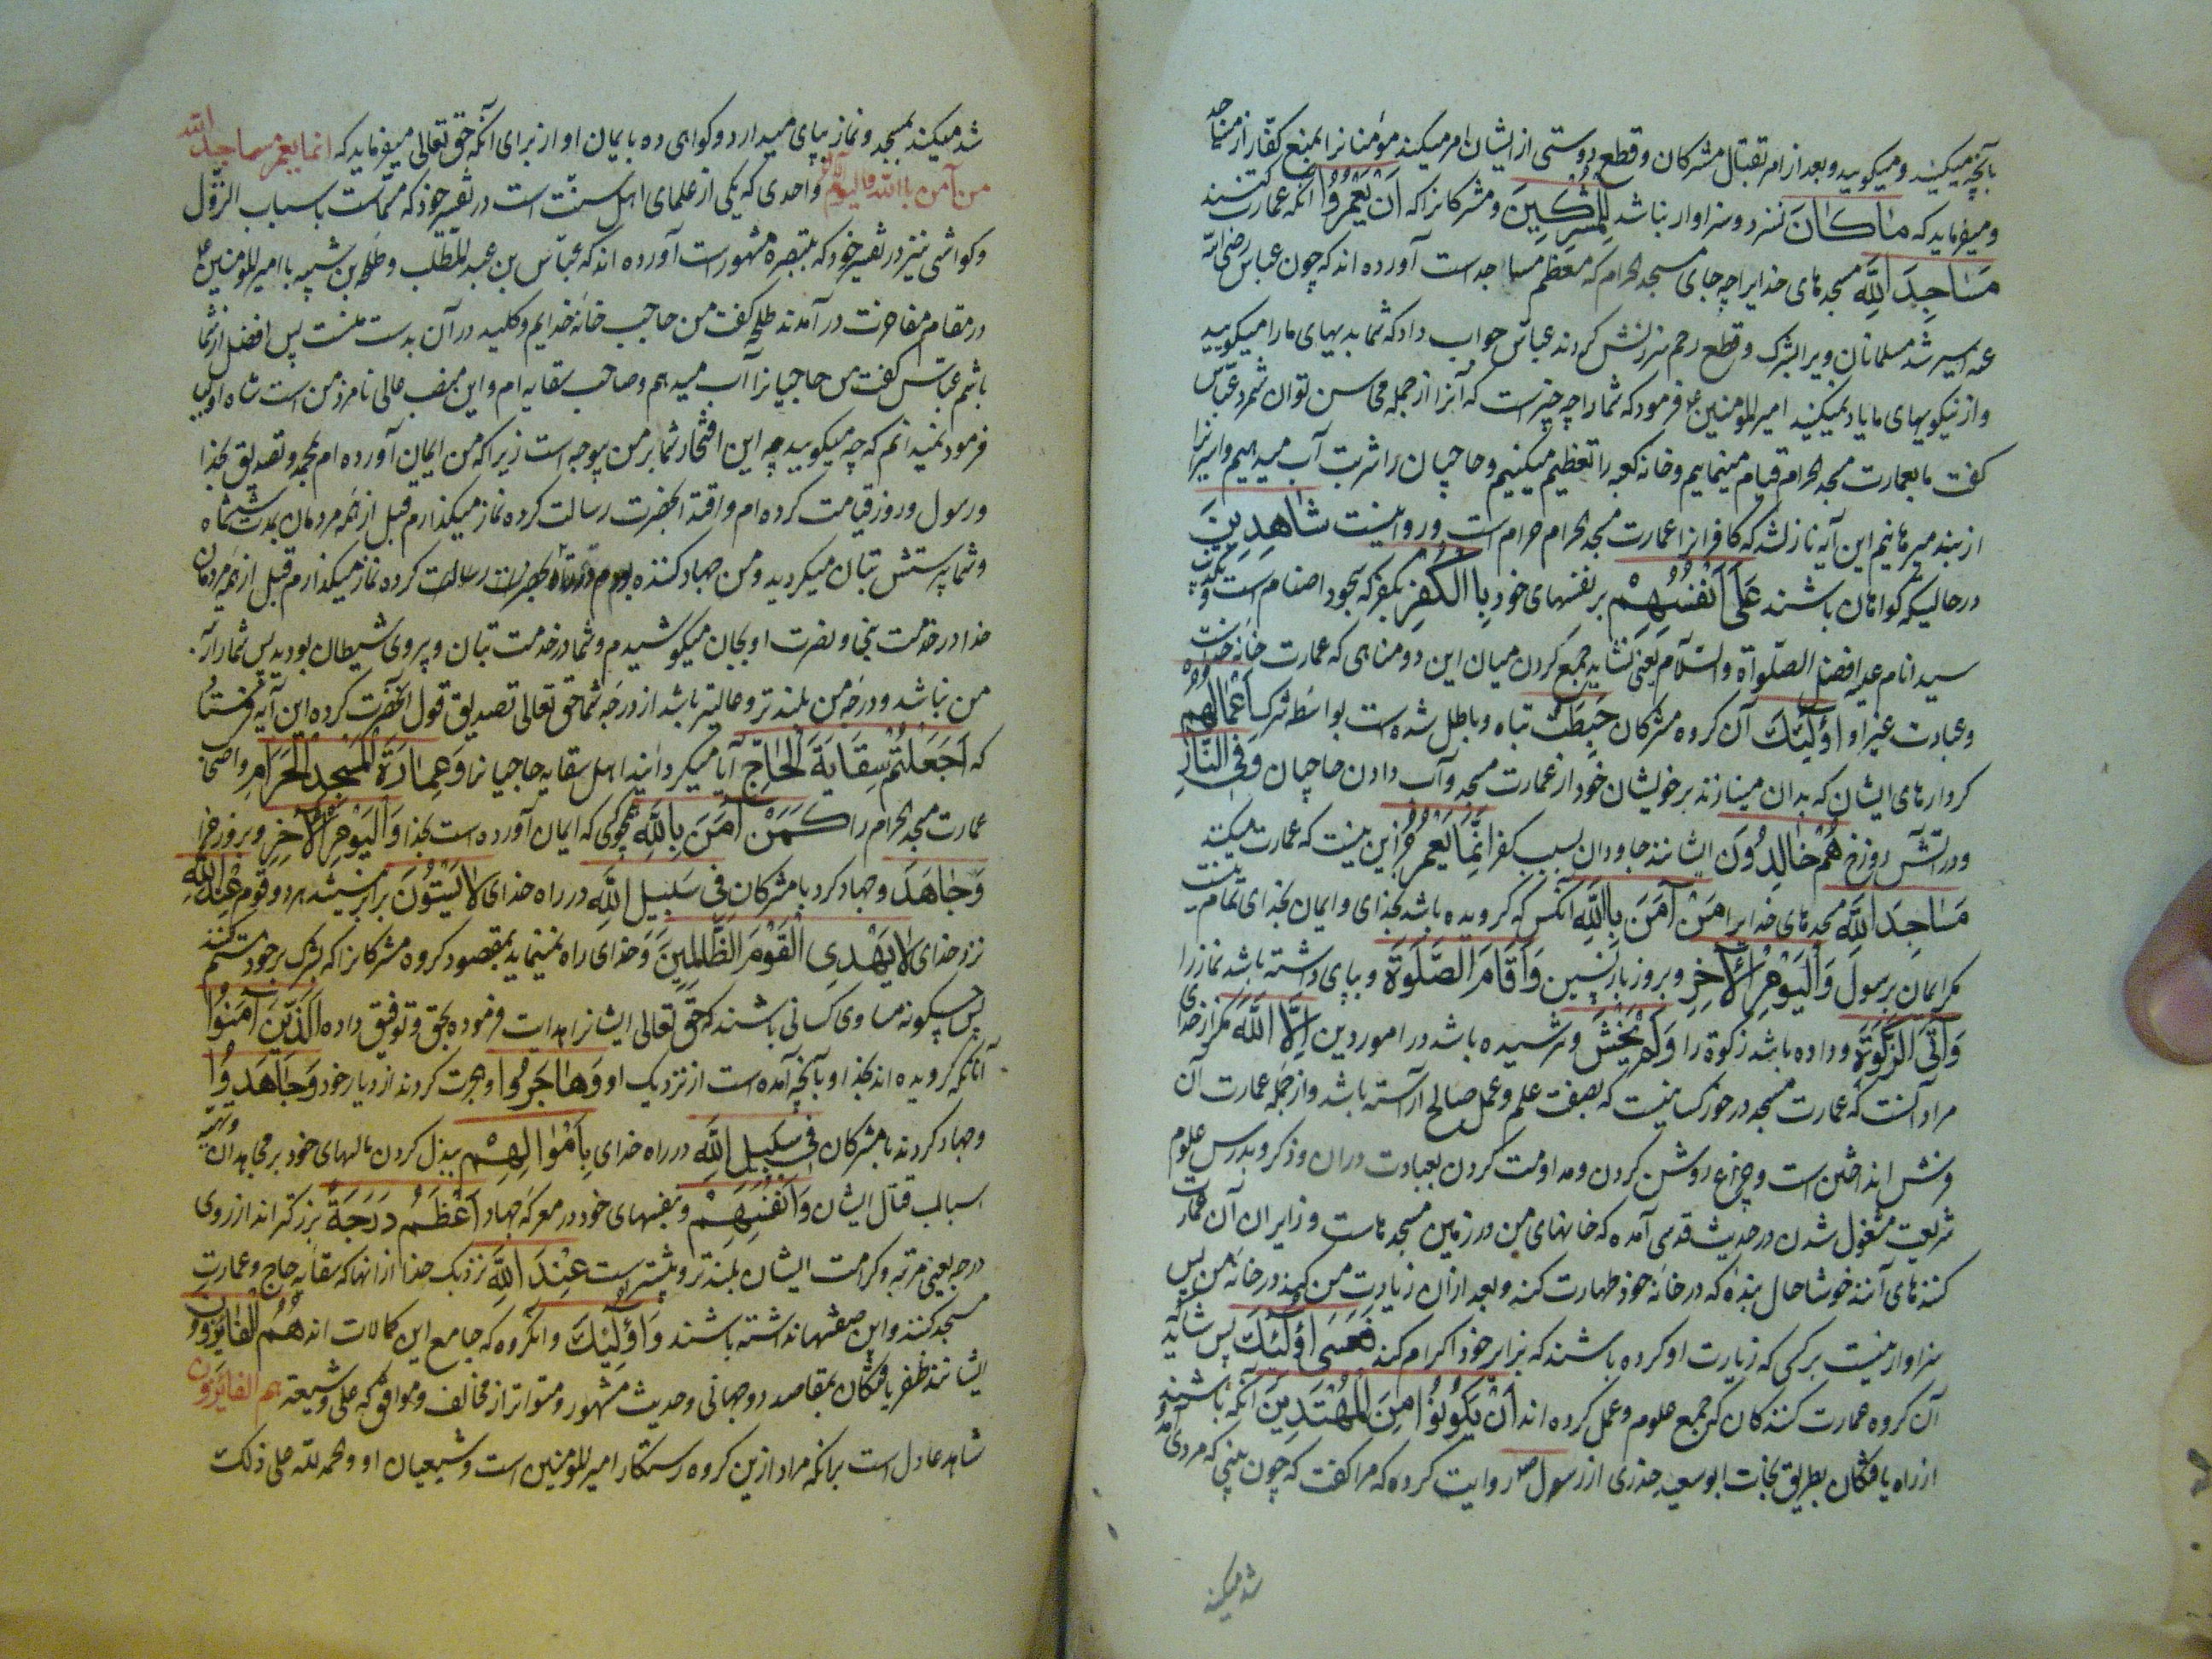 بآنچه میکنید و میگویید و بعد از امر تقبال مشرکان و قطع دوستی از ایشان امر میکند مؤمنانرا بمنع کفار از مساجد
و میفرماید که مَا كَانَ نسزد و سزاوار نباشد لِلْمُشْرِكِينَ و مشرکانرا که اَنْ يَعْمُرُوا آنکه عمارت کنند
مَسَاجِدَ اللّٰهِ مسجدهای خدایرا چه جای مسجد الحرام که معظم مساجد است آورده اند که چون عباس رضی الله
عنه اسیر شد مسلمانان ویرا بشرک و قطع رحم سرزنش کردند عباس جواب داد که شما بدیهای ما را میگویید
و از نیکوییهای ما یاد نمیکنید امیر المومنین ع فرمود که شما را چه چیز است که آنرا از جمله محاسن توان شمرد عباس
گفت ما بعمارت مسجد الحرام قیام مینماییم و خانه کعبه را تعظیم میکنیم و حاجیان را شربت آب میدهیم و اسیرانرا
از بند میرهانیم این آیه نازل شد که کافرانرا عمارت مسجد الحرام حرام است و روا نیست شَاهِدِينَ
درحالیکه گواهان باشند عَلٰى اَنْفُسِهِمْ بر نفسهای خود بِالْكُفْرِ بکفر که سجود اصنام است و تکذیب
سید انام علیه افضل الصلواة والسلام یعنی نشاید جمع کردن میان این دو منافی که عمارت خانه خداست
و عبادت غیر او اُولٰئِكَ آن گروه مشرکان حَبِطَتْ تباه و باطل شده است بواسطه شرک اَعْمَالُهُمْ
کردارهای ایشان که بدان مینازند بر خویشان خود از عمارت مسجد و آب دادن حاجیان وَفِى النَّارِ
و در آتش دوزخ هُمْ خَالِدُونَ ایشانند جاودان بسبب کفر اِنَّمَا يَعْمُرُ جز این نیست که عمارت میکند
مَسَاجِدَ اللّٰهِ مسجدهای خدایرا مَنْ اٰمَنَ بِاللّٰهِ آنکس که گرویده باشد بخدای و ایمان بخدای تمام نیست
مگر ایمان برسول وَالْيَوْمِ الْاٰخِرِ و بروز بازپسین وَاَقَامَ الصَّلٰوةَ و بپای داشته باشد نماز را
وَاٰتَى الزَّكٰوةَ و داده باشد زکوة را وَلَمْ يَخْشَ و نترسیده باشد در امور دین اِلَّا اللّٰهَ مگر از خدای
مراد آنست که عمارت مسجد در خور کسانیست که بصفت علم و عمل صالح آراسته باشد و از جمله عمارت آن
فرش انداختن است و چراغ روشن کردن و مداومت کردن بعبادت در آن و ذکر و بدرس علوم
شریعت مشغول شدن در حدیث قدسی آمده که خانهای من در زمین مسجدهاست و زایران آن عمارت
کننده‌های آنند خوشا حال بنده که در خانه خود طهارت کند و بعد از آن زیارت من کند در خانه من پس
سزاوار نیست بر کسی که زیارت او کرده باشند که زایر خود اکرام کند فَعَسٰى اُولٰئِكَ پس شاید
آن گروه عمارت کنندکان که جمع علوم و عمل کرده اند اَنْ يَكُونُوا مِنَ الْمُهْتَدِينَ آنکه باشند
از راه یافتگان بطریق نجات ابوسعید خذری از رسول ص روایت کرده که مرا گفت که چون بینی که مردی آمد
شد میکند
شد میکند بمسجد و نماز بپای میدارد و گواهی ده بایمان او از برای آنکه حق تعالی میفرماید که انما یعمر مساجد الله
من آمن بالله والیوم الآخر واحدی که یکی از علمای اهل سنت است در تفسیر خود که مسماست باسباب النزول
و کواشی نیز در تفسیر خود که بتبصره مشهور است آورده اند که عباس بن عبد المطلب و طلحه بن شیبه با امیر المومنین ع
در مقام مفاخرت در آمدند طلحه گفت من حاجب خانه خدایم و کلید در آن بدست منست پس افضل از شما
باشم عباس گفت من حاجیانرا آب میدهم و صاحب سقایه ام و این منصب عالی نامزد من است شاه اولیا
فرمود نمیدانم که چه میگویید چه این افتخار شما بر من بیوجه است زیرا که من ایمان آورده ام بمحمد و تصدیق بخدا
و رسول و روز قیامت کرده ام و اقتدا بحضرت رسالت کرده نماز میگذارم قبل از همه مردمان بمدت ششماه
و شما پرستش بتان میکردید و من جهاد کننده بودم و اقتدا بحضرت رسالت کرده نماز میگذارم قبل از همه مردمان
خدا در خدمت نبی و نصرت او بجان میکوشیدم و شما در خدمت بتان و پیروی شیطان بودید پس شما را
من نباشد و درجه من بلندتر و عالیتر باشد از درجه شما حق تعالی تصدیق قول آنحضرت کرده این آیه فرستاد
که اَجَعَلْتُمْ سِقَايَةَ الْحَاجِّ آیا میگردانید اهل سقایه حاجیانرا وَعِمَارَةَ الْمَسْجِدِ الْحَرَامِ و اصحاب
عمارت مسجد الحرام را كَمَنْ اٰمَنَ بِاللّٰهِ همچو کسی که ایمان آورده است بخدا وَالْيَوْمِ الْاٰخِرِ و بروز جزا
وَجَاهَدَ و جهاد کرد با مشرکان فِى سَبِيلِ اللّٰهِ در راه خدای لَا يَسْتَوُنَ برابر نیستند هر دو قوم عِنْدَ اللّٰهِ
نزد خدای لَا يَهْدِى الْقَوْمَ الظَّالِمِينَ و خدای راه ننماید بمقصود گروه مشرکانرا که بشرک بر خود ستم کنند
پس چگونه مساوی کسانی باشند که حق تعالی ایشانرا هدایت فرموده بحق و توفیق داده اَلَّذِينَ اٰمَنُوا
آنانکه گرویده اند بخدا و بآنچه آمده است از نزدیک او وَهَاجَرُوا و هجرت کردند از دیار خود وَجَاهَدُوا
و جهاد کردند با مشرکان فِى سَبِيلِ اللّٰهِ در راه خدای بِاَمْوَالِهِمْ ببذل کردن مالهای خود بر مجاهدان و تهیه
اسباب قتال ایشان وَاَنْفُسِهِمْ و بنفسهای خود در معرکه جهاد اَعْظَمُ دَرَجَةً بزرگترند از روی
درجه یعنی مرتبه و کرامت ایشان بلندتر و بیشتر است عِنْدَ اللّٰهِ نزدیک خدا از آنها که سقایه حاج و عمارت
مسجد کنند و این صفتها نداشته باشند وَاُولٰئِكَ و آنگروه که جامع این کمالات اند هُمُ الْفَائِزُونَ
ایشانند ظفر یافتگان بمقاصد دو جهانی و حدیث مشهور و متواتر از مخالف و موافق که علی و شیعته هم الفائزون
شاهد عادل است برآنکه مراد ازین گروه رستگار امیر المومنین است و شیعیان او والحمد لله علی ذلک